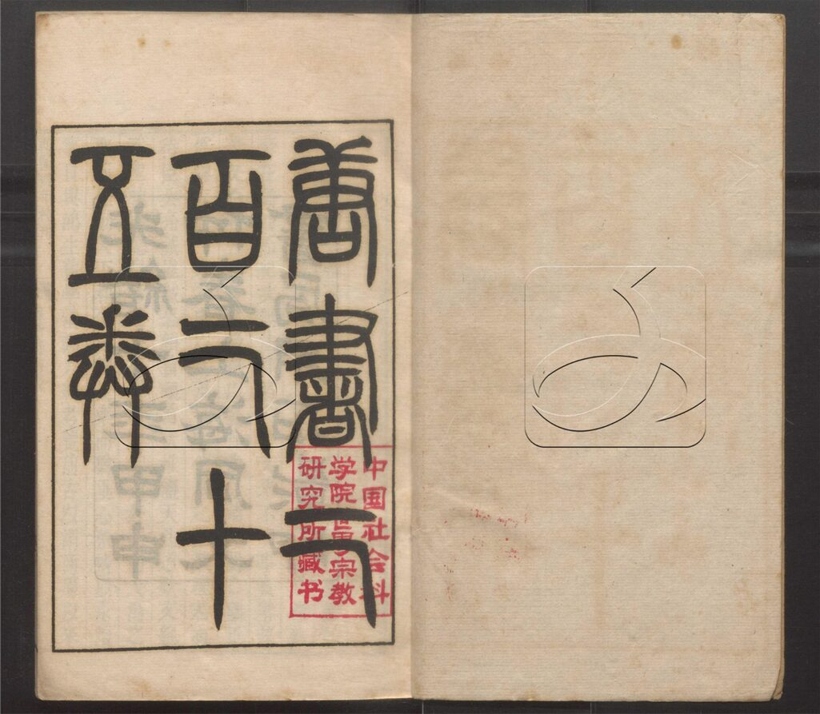 唐書二
百二十
五卷
中国社会科
学院世界宗教
研究所藏书